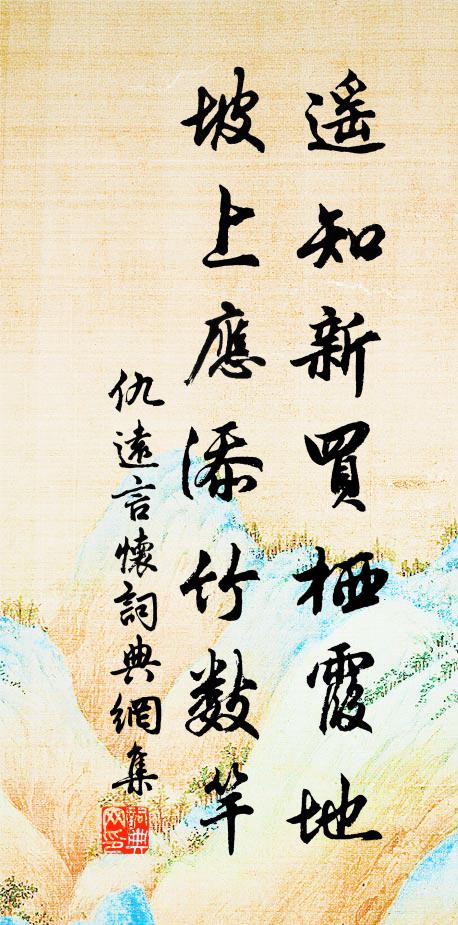 遥知新買栖霞地
坡上應添竹數竿
仇遠言懷詞典網集
詞典
网印